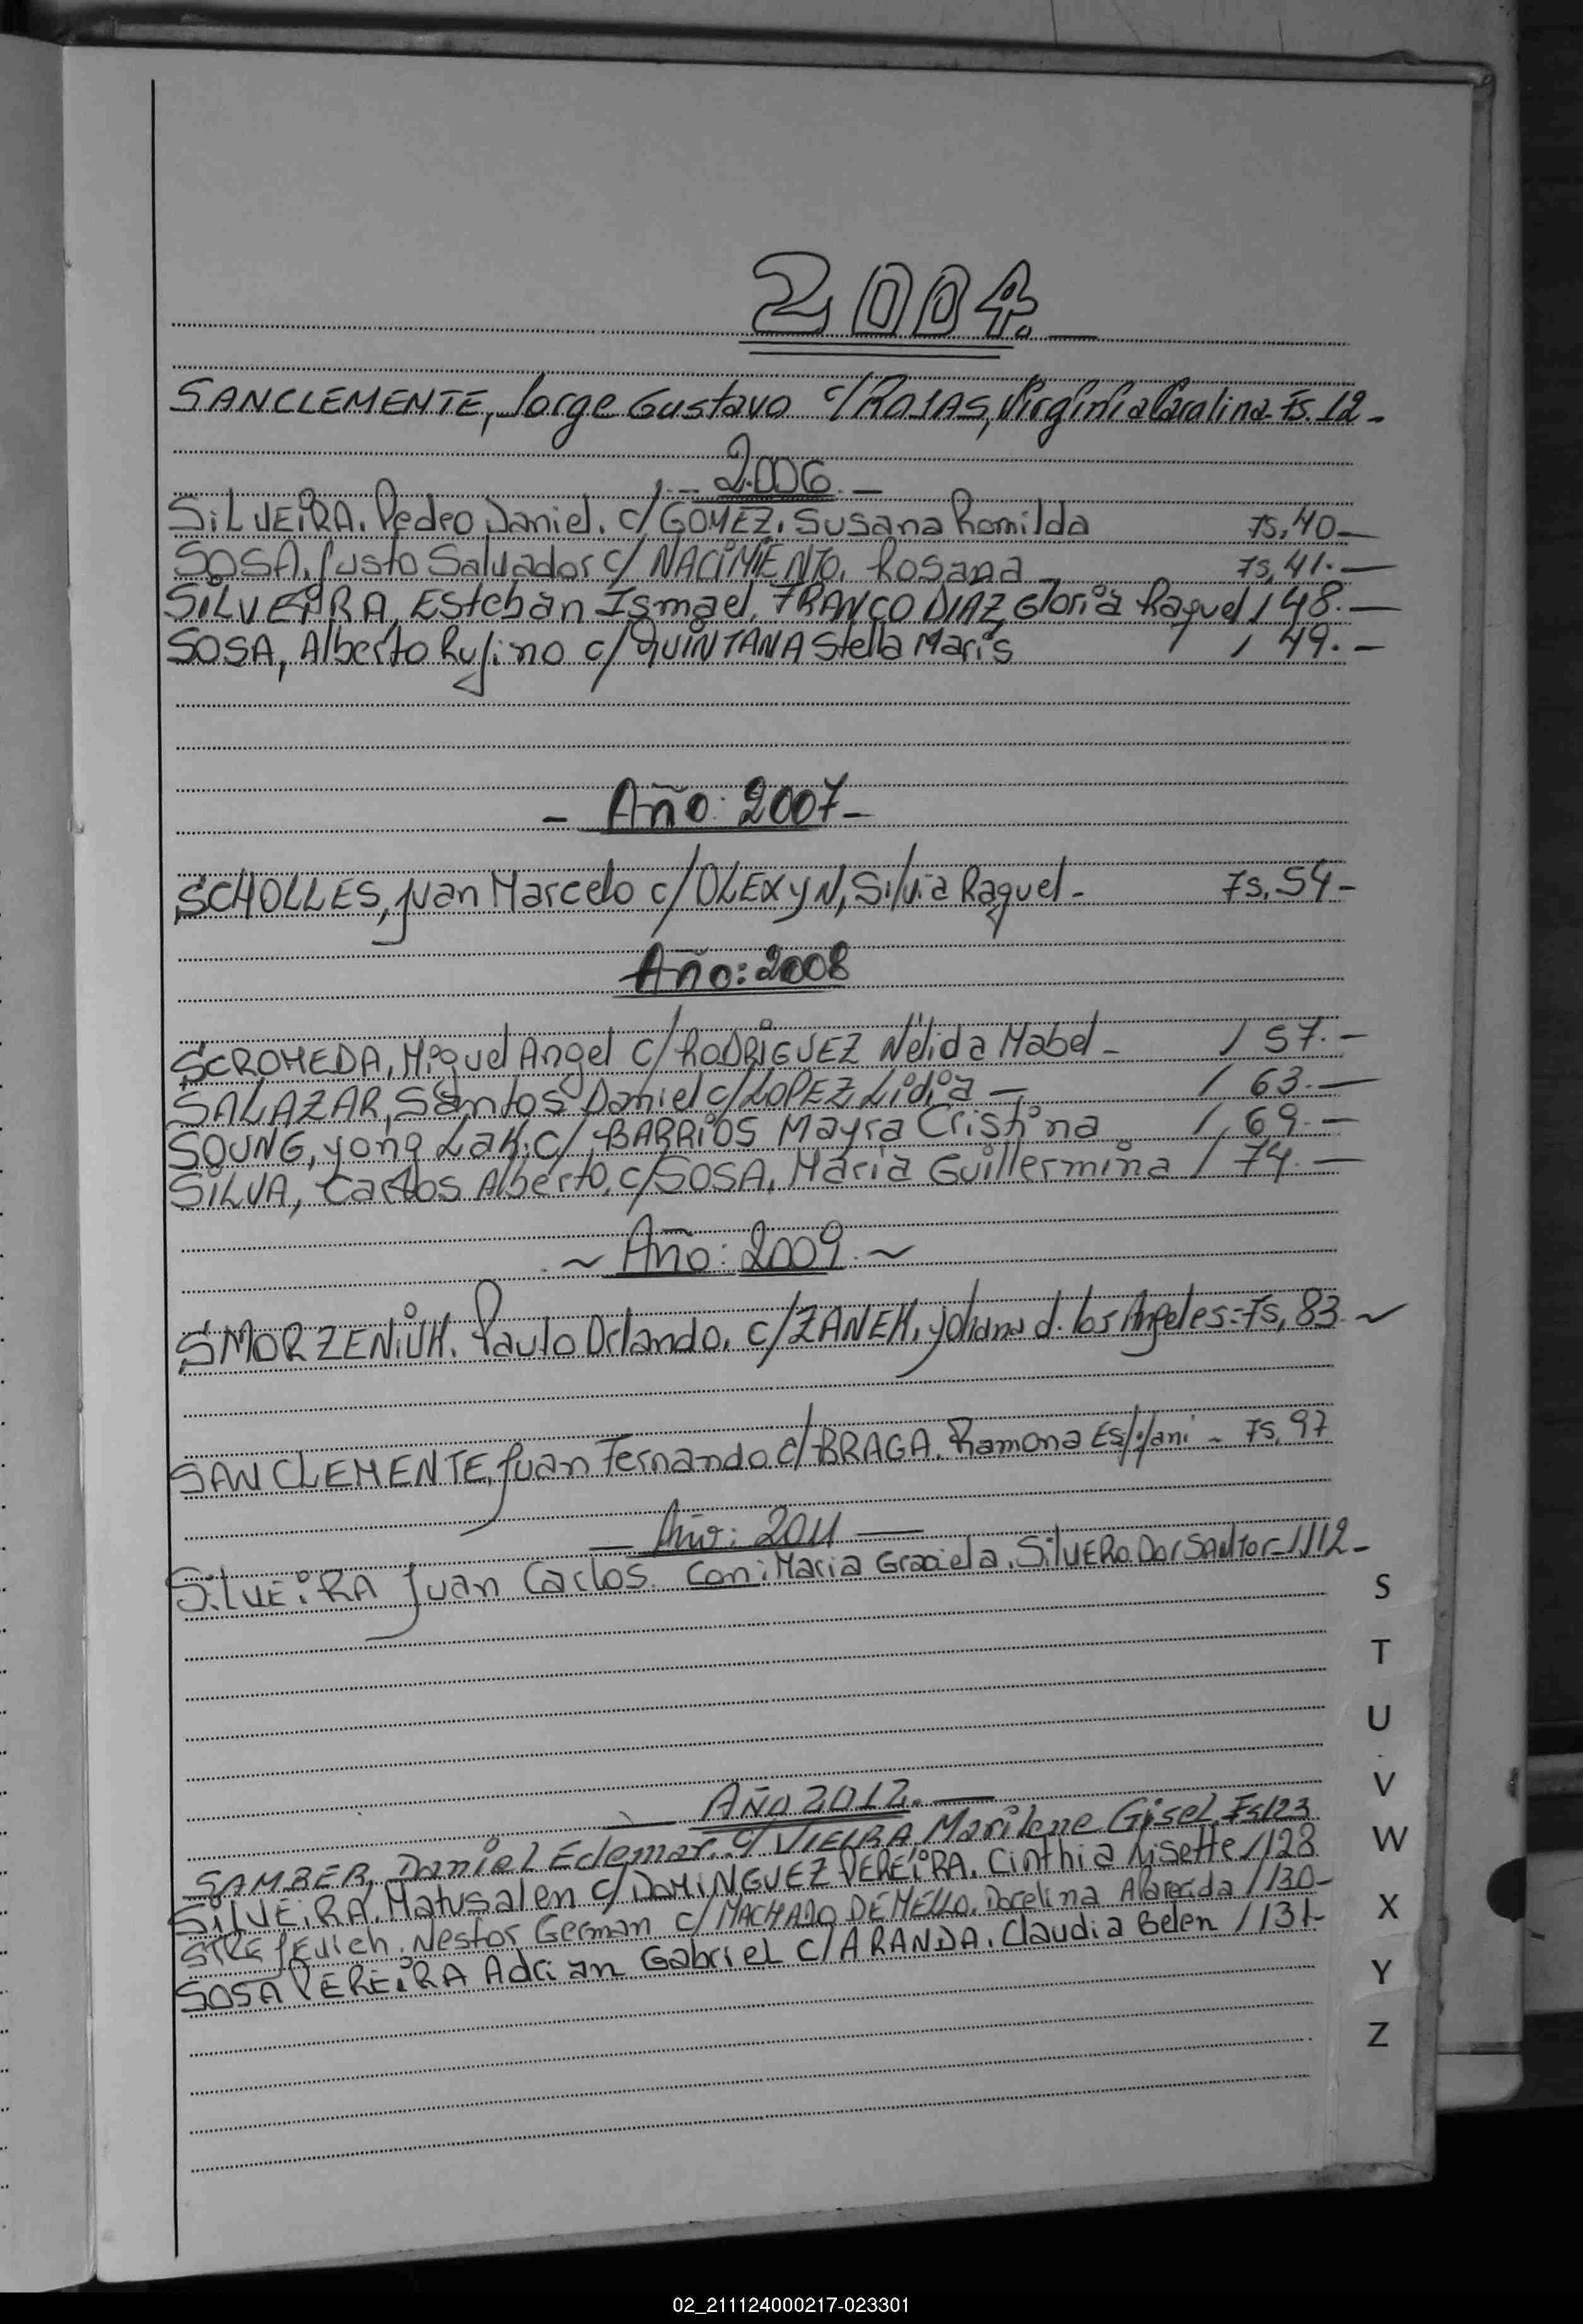 2004.
SANCLEMENTE, Jorge Gustavo c/ ROJAS, Virginia Carolina Fs. 12.-
2.006.-
SILVEIRA. Pedro Daniel. c/ GOMEZ. Susana Romilda Fs, 40.-
SOSA. Justo Salvador c/ NACIMIENTO. Rosana Fs, 41.-
SILVEIRA, Esteban Ismael. FRANCO DIAZ, Gloria Raquel / 48.-
SOSA, Alberto Rufino c/ QUINTANA Stella Maris / 49.-
- Año: 2007-
SCHOLLES, Juan Marcelo c/ OLEXYN, Silvia Raquel - Fs, 54-
Año: 2008
SCROMEDA, Miguel Angel c/ RODRIGUEZ Nélida Mabel - / 57.-
SALAZAR, Santos Daniel c/ LOPEZ, Lidia - / 63.-
SOUNG, Yong Lak. c/ BARRIOS Mayra Cristina / 69.-
SILVA, Carlos Alberto, c/ SOSA, Maria Guillermina / 74.-
~ Año: 2009. ~
SMORZENIUK. Paulo Orlando. c/ ZANEK, Yohana d. los Angeles.- Fs, 83. ~
SANCLEMENTE, Juan Fernando c/ BRAGA. Ramona Estifani - Fs, 97
- Año: 2011 -
SILVEIRA Juan Carlos. Con: Maria Graciela. SILVERO. Dos SANTOS - / 112-
AÑO 2012.-
SAMBER, Daniel Edemar. c/ VIEIRA Marilene Gisel Fs 123
SILVEIRA. Matusalen c/ DOMINGUEZ PEREIRA. Cinthia Lisette / 128
STREJEVICH. Nestor German c/ MACHADO DE MELLO. Docelina Aparecida / 130-
SOSA PEREIRA Adrian Gabriel c/ ARANDA. Claudia Belen / 131-
S
T
U
V
W
X
Y
Z
02_211124000217-023301